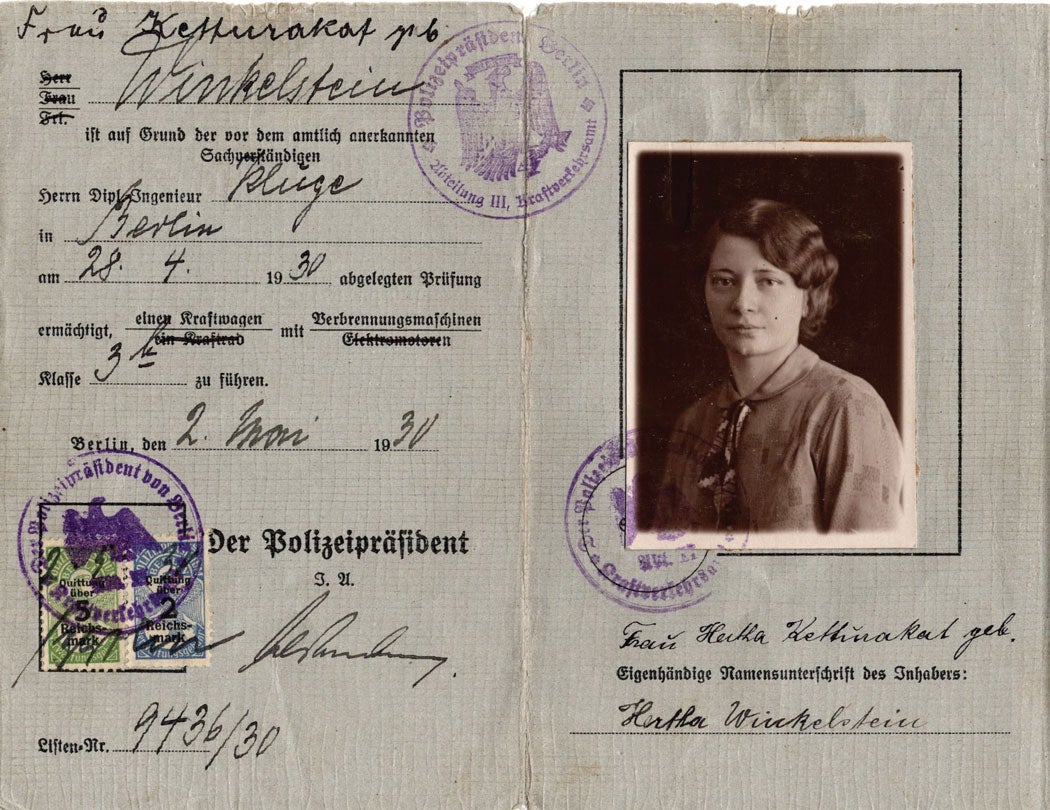 Frau Ketturakat geb
Herr
Frau Winkelstein
Frl.
ist auf Grund der vor dem amtlich anerkannten
Sachverständigen
Herrn Dipl. Ingenieur Kluge
in Berlin
am 28. 4. 1930 abgelegten Prüfung
einen Kraftwagen Verbrennungsmaschinen
ermächtigt, mit
ein Kraftrad Elektromotoren
Klasse 3b zu führen.
Berlin, den 2. Mai 1930
Der Polizeipräsident
I. A.
Listen-Nr. 9436/30
Polizeipräsident Berlin
Abteilung III, Kraftverkehrsamt
Der Polizeipräsident von Berlin
Kraftverkehrs
Quittung
über
5
Reichs-
mark
Quittung
über
2
Reichs-
mark
Der Polizei
Kraftverkehrs
Frau Hertha Ketturakat geb.
Eigenhändige Namensunterschrift des Inhabers:
Hertha Winkelstein